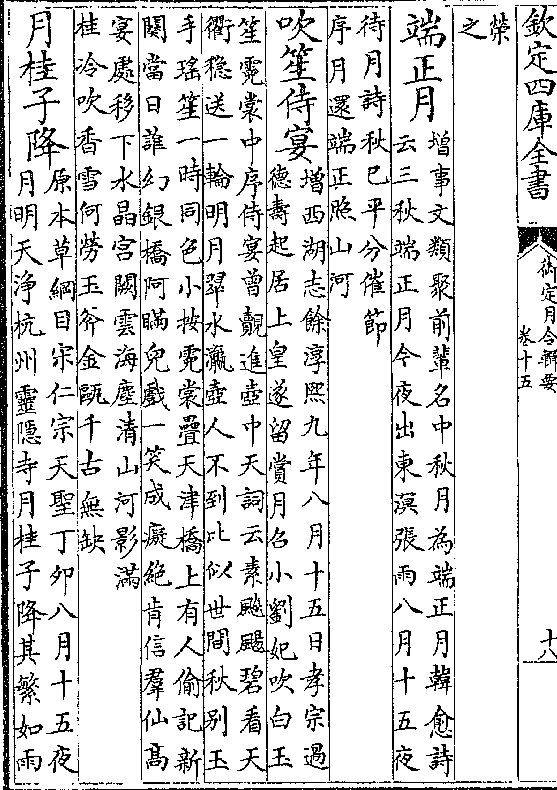 欽定四庫全書
御定月令輯要
卷十五
十八
榮
之
端正月
增事文類聚前輩名中秋月為端正月韓愈詩
云三秋端正月今夜出東溟張雨八月十五夜
待月詩秋已平分催節
序月還端正照山河
吹笙侍宴
增西湖志餘淳熙九年八月十五日孝宗過
德壽起居上皇遂留賞月召小劉妃吹白玉
笙霓裳中序侍宴曾覿進壺中天詞云素飈颺碧看天
衢穩送一輪明月翠水瀛壺人不到比似世間秋別玉
手瑶笙一時同色小按霓裳疊天津橋上有人偷記新
闋當日誰幻銀橋阿瞞兒戲一笑成癡絕肯信羣仙髙
宴處移下水晶宮闕雲海塵清山河影滿
桂冷吹香雪何勞玉斧金甌千古無缺
月桂子降
原本草綱目宋仁宗天聖丁卯八月十五夜
月明天淨杭州靈隱寺月桂子降其繁如雨